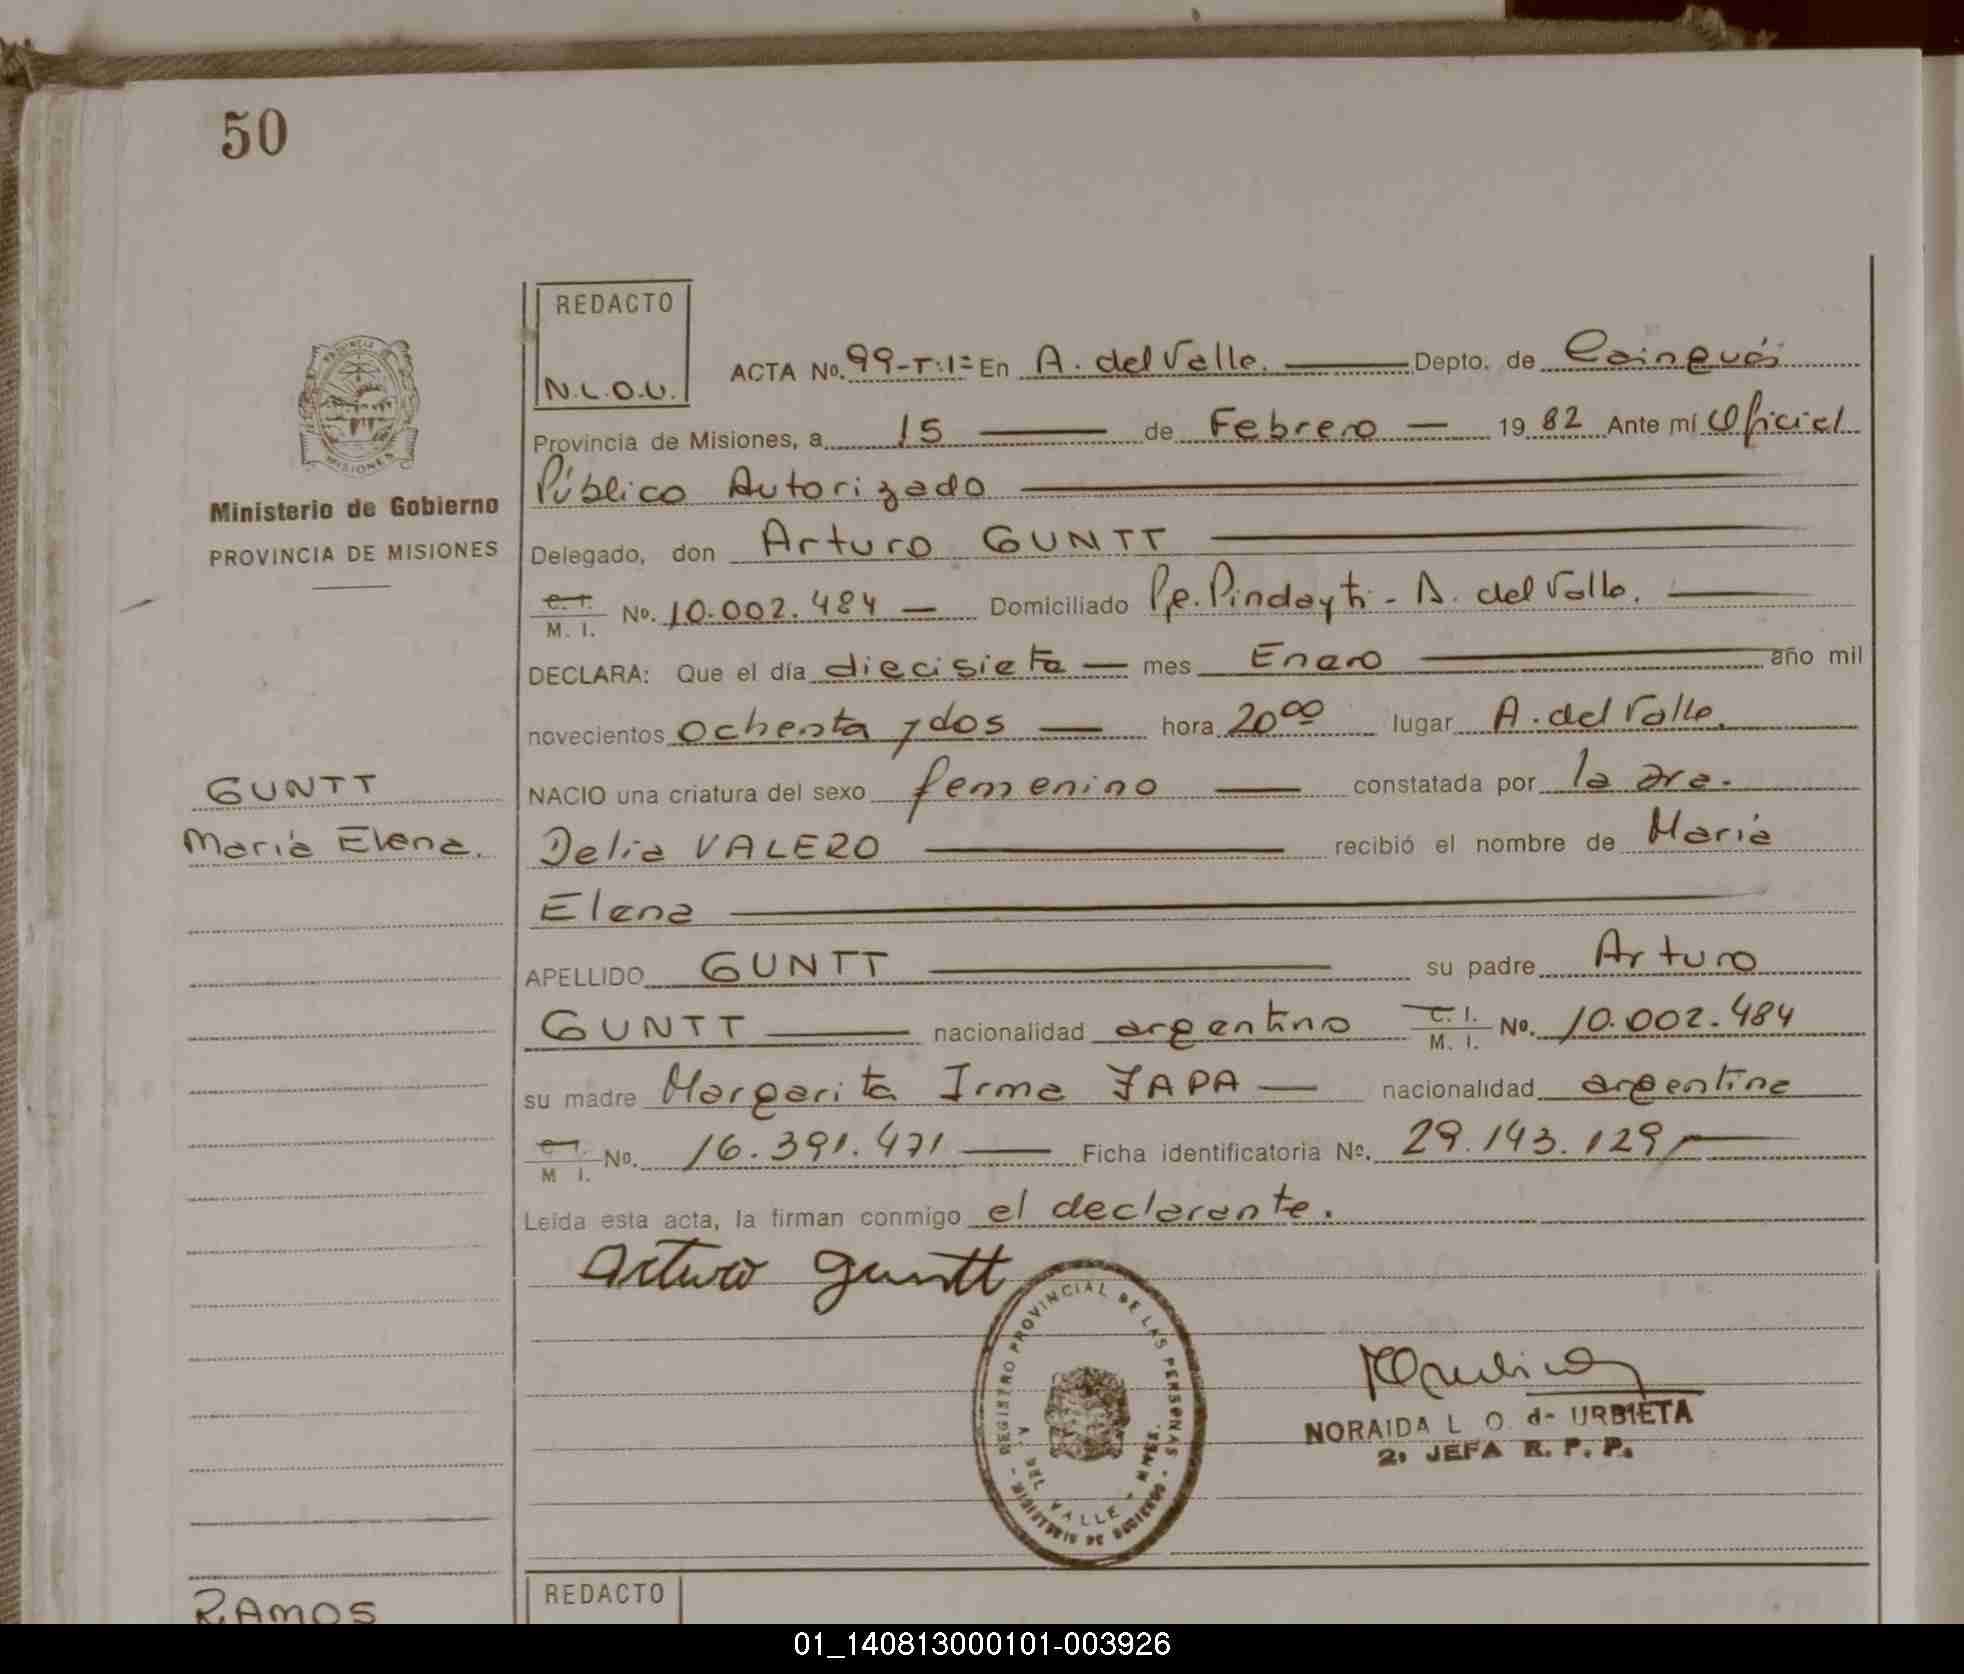 50
REDACTO
N.L.O.U.
ACTA No. 99-T:1= En A. del Valle. Depto. de Cainguás
Provincia de Misiones, a 15 de Febrero 1982 Ante mí Oficial
Público Autorizado
Delegado, don Arturo GUNTT
C. I. M. I. No. 10.002.484 Domiciliado Pje. Pindayti - A. del Valle.
DECLARA: Que el día diecisiete mes Enero año mil
novecientos ochenta y dos hora 20 00 lugar A. del Valle.
NACIO una criatura del sexo femenino constatada por la
Delia VALERO recibió el nombre de María
Elena
APELLIDO GUNTT su padre Arturo
GUNTT nacionalidad argentino C. I. M. I. No. 10.002.484
su madre Margarita Irma nacionalidad argentina
C. I. M I. No. 16.391.471 Ficha identificatoria No. 29.143.129
Leída esta acta, la firman conmigo el declarante.
Arturo guntt
PROVINCIA DE MISIONES
Ministerio de Gobierno
PROVINCIA DE MISIONES
GUNTT
María Elena.
REGISTRO PROVINCIAL DE LAS PERSONAS
A. DEL VALLE - MNES.
MINISTERIO DE GOBIERNO
NORAIDA L O. de URBIETA
2ª JEFA R. P. P.
RAMOS
REDACTO
01_140813000101-003926